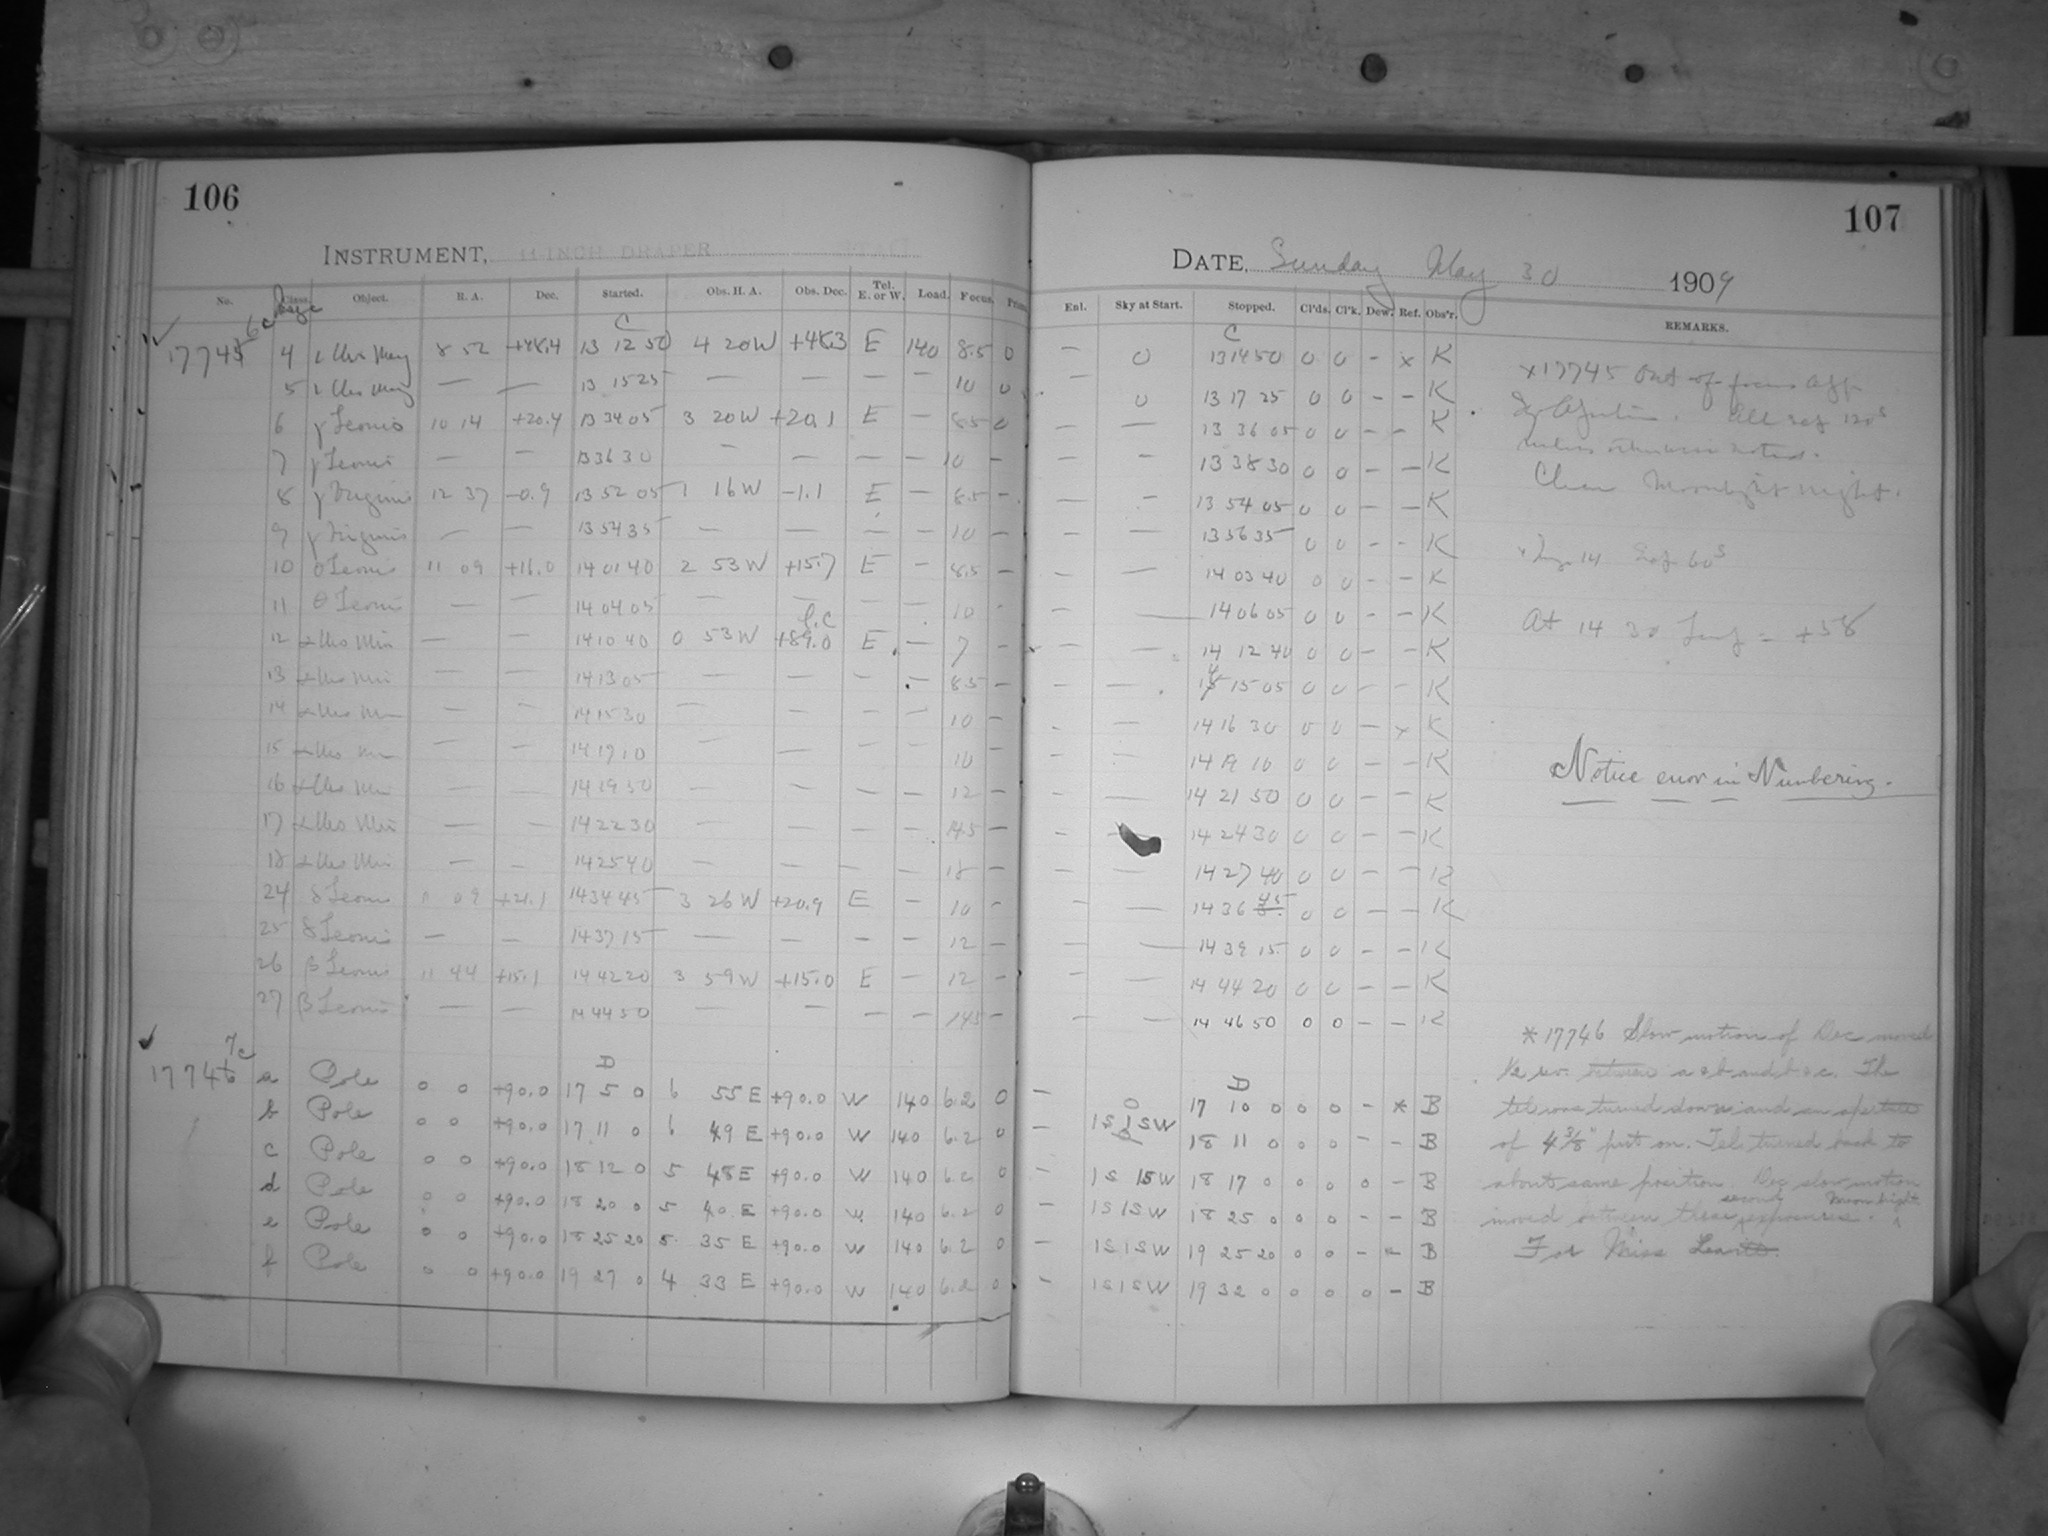 106
INSTRUMENT, 11-INCH DRAPER
No. Class. Image Object. R. A. Dec. Started. Obs. H. A. Obs. Dec. Tel. E. or W. Load. Focus.
C
17745 6c 4 ι Urs Maj 8 52 +48.4 13 12 50 4 20 W +48.3 E 140 8.5 0
5 ι Urs Maj — — 13 15 25 — — — — 10 0
6 γ Leonis 10 14 +20.4 13 34 05 3 20 W +20.1 E — 8.5 0
7 γ Leonis — — 13 36 30 — — — — 10 —
8 γ Virginis 12 37 -0.9 13 52 05 1 16 W -1.1 E — 8.5 -
9 γ Virginis — — 13 54 35 — — — — 10 —
10 θ Leonis 11 09 +16.0 14 01 40 2 53 W +15.7 E — 8.5 —
11 θ Leonis — — 14 04 05 — — — — 10 -
12 α Urs Min — — 14 10 40 0 53 W S.C +89.0 E — 7 -
13 α Urs Min — — 14 13 05 — — — — 8.5 —
14 α Urs Min — — 14 15 30 — — — — 10 —
15 α Urs Min — — 14 17 10 — — — — 10 —
16 α Urs Min — — 14 19 50 — — — — 12 —
17 α Urs Min — — 14 22 30 — — — — 14.5 —
18 α Urs Min — — 14 25 40 — — — — 18 —
24 δ Leonis 11 09 +21.1 14 34 45 3 26 W +20.9 E — 10 -
25 δ Leonis — — 14 37 15 — — — — 12 —
26 β Leonis 11 44 +15.1 14 42 20 3 59 W +15.0 E — 12 —
27 β Leonis — — 14 44 50 — — — — 14.5 —
D
17746 7c a Pole 0 0 +90.0 17 5 0 6 55 E +90.0 W 140 6.2 0
b Pole 0 0 +90.0 17 11 0 6 49 E +90.0 W 140 6.2 0
c Pole 0 0 +90.0 18 12 0 5 48 E +90.0 W 140 6.2 0
d Pole 0 0 +90.0 18 20 0 5 40 E +90.0 W 140 6.2 0
e Pole 0 0 +90.0 18 25 20 5 35 E +90.0 W 140 6.2 0
f Pole 0 0 +90.0 19 27 0 4 33 E +90.0 W 140 6.2 0
107
DATE, Sunday May 30 1909
Enl. Sky at Start. Stopped. Cl'ds. Cl'k. Dew. Ref. Obs'r. REMARKS.
C
— 0 13 14 50 0 0 - x K
— 0 13 17 25 0 0 - - K
— — 13 36 05 0 0 - - K
— - 13 38 30 0 0 - - K
— - 13 54 05 0 0 - - K
— — 13 56 35 0 0 - - K
— — 14 03 40 0 0 - - K
— — 14 06 05 0 0 - - K
— — 14 12 40 0 0 - - K
— — 14 15 05 0 0 - - K
— — 14 16 30 0 0 - x K
— — 14 19 10 0 0 - - K
— — 14 21 50 0 0 - - K
— — 14 24 30 0 0 - - K
— — 14 27 40 0 0 - - K
— — 14 36 45 0 0 - - K
— — 14 39 15 0 0 - - K
— — 14 44 20 0 0 - - K
— — 14 46 50 0 0 - - K
D
— 0 17 10 0 0 0 - * B
— 1S1SW 18 11 0 0 0 - - B
— 1S1SW 18 17 0 0 0 0 - B
— 1S1SW 18 25 0 0 0 - - B
— 1S1SW 19 25 20 0 0 - - B
— 1S1SW 19 32 0 0 0 0 - B
x 17745 Out of focus
All exp 120s
unless otherwise noted.
Clear Moonlight night.
x Img 14 Exp 60s
At 14 30 Temp = +58
Notice error in Numbering.
* 17746 Slow motion of Dec moved
1/2 rev. between a & b and b & c. The
tel. was turned down and an aperture
of 4 3/8" put on. Tel. turned back to
about same position. Dec slow motion
moved between these second exposures. Moon bright
For Miss Leavitt.